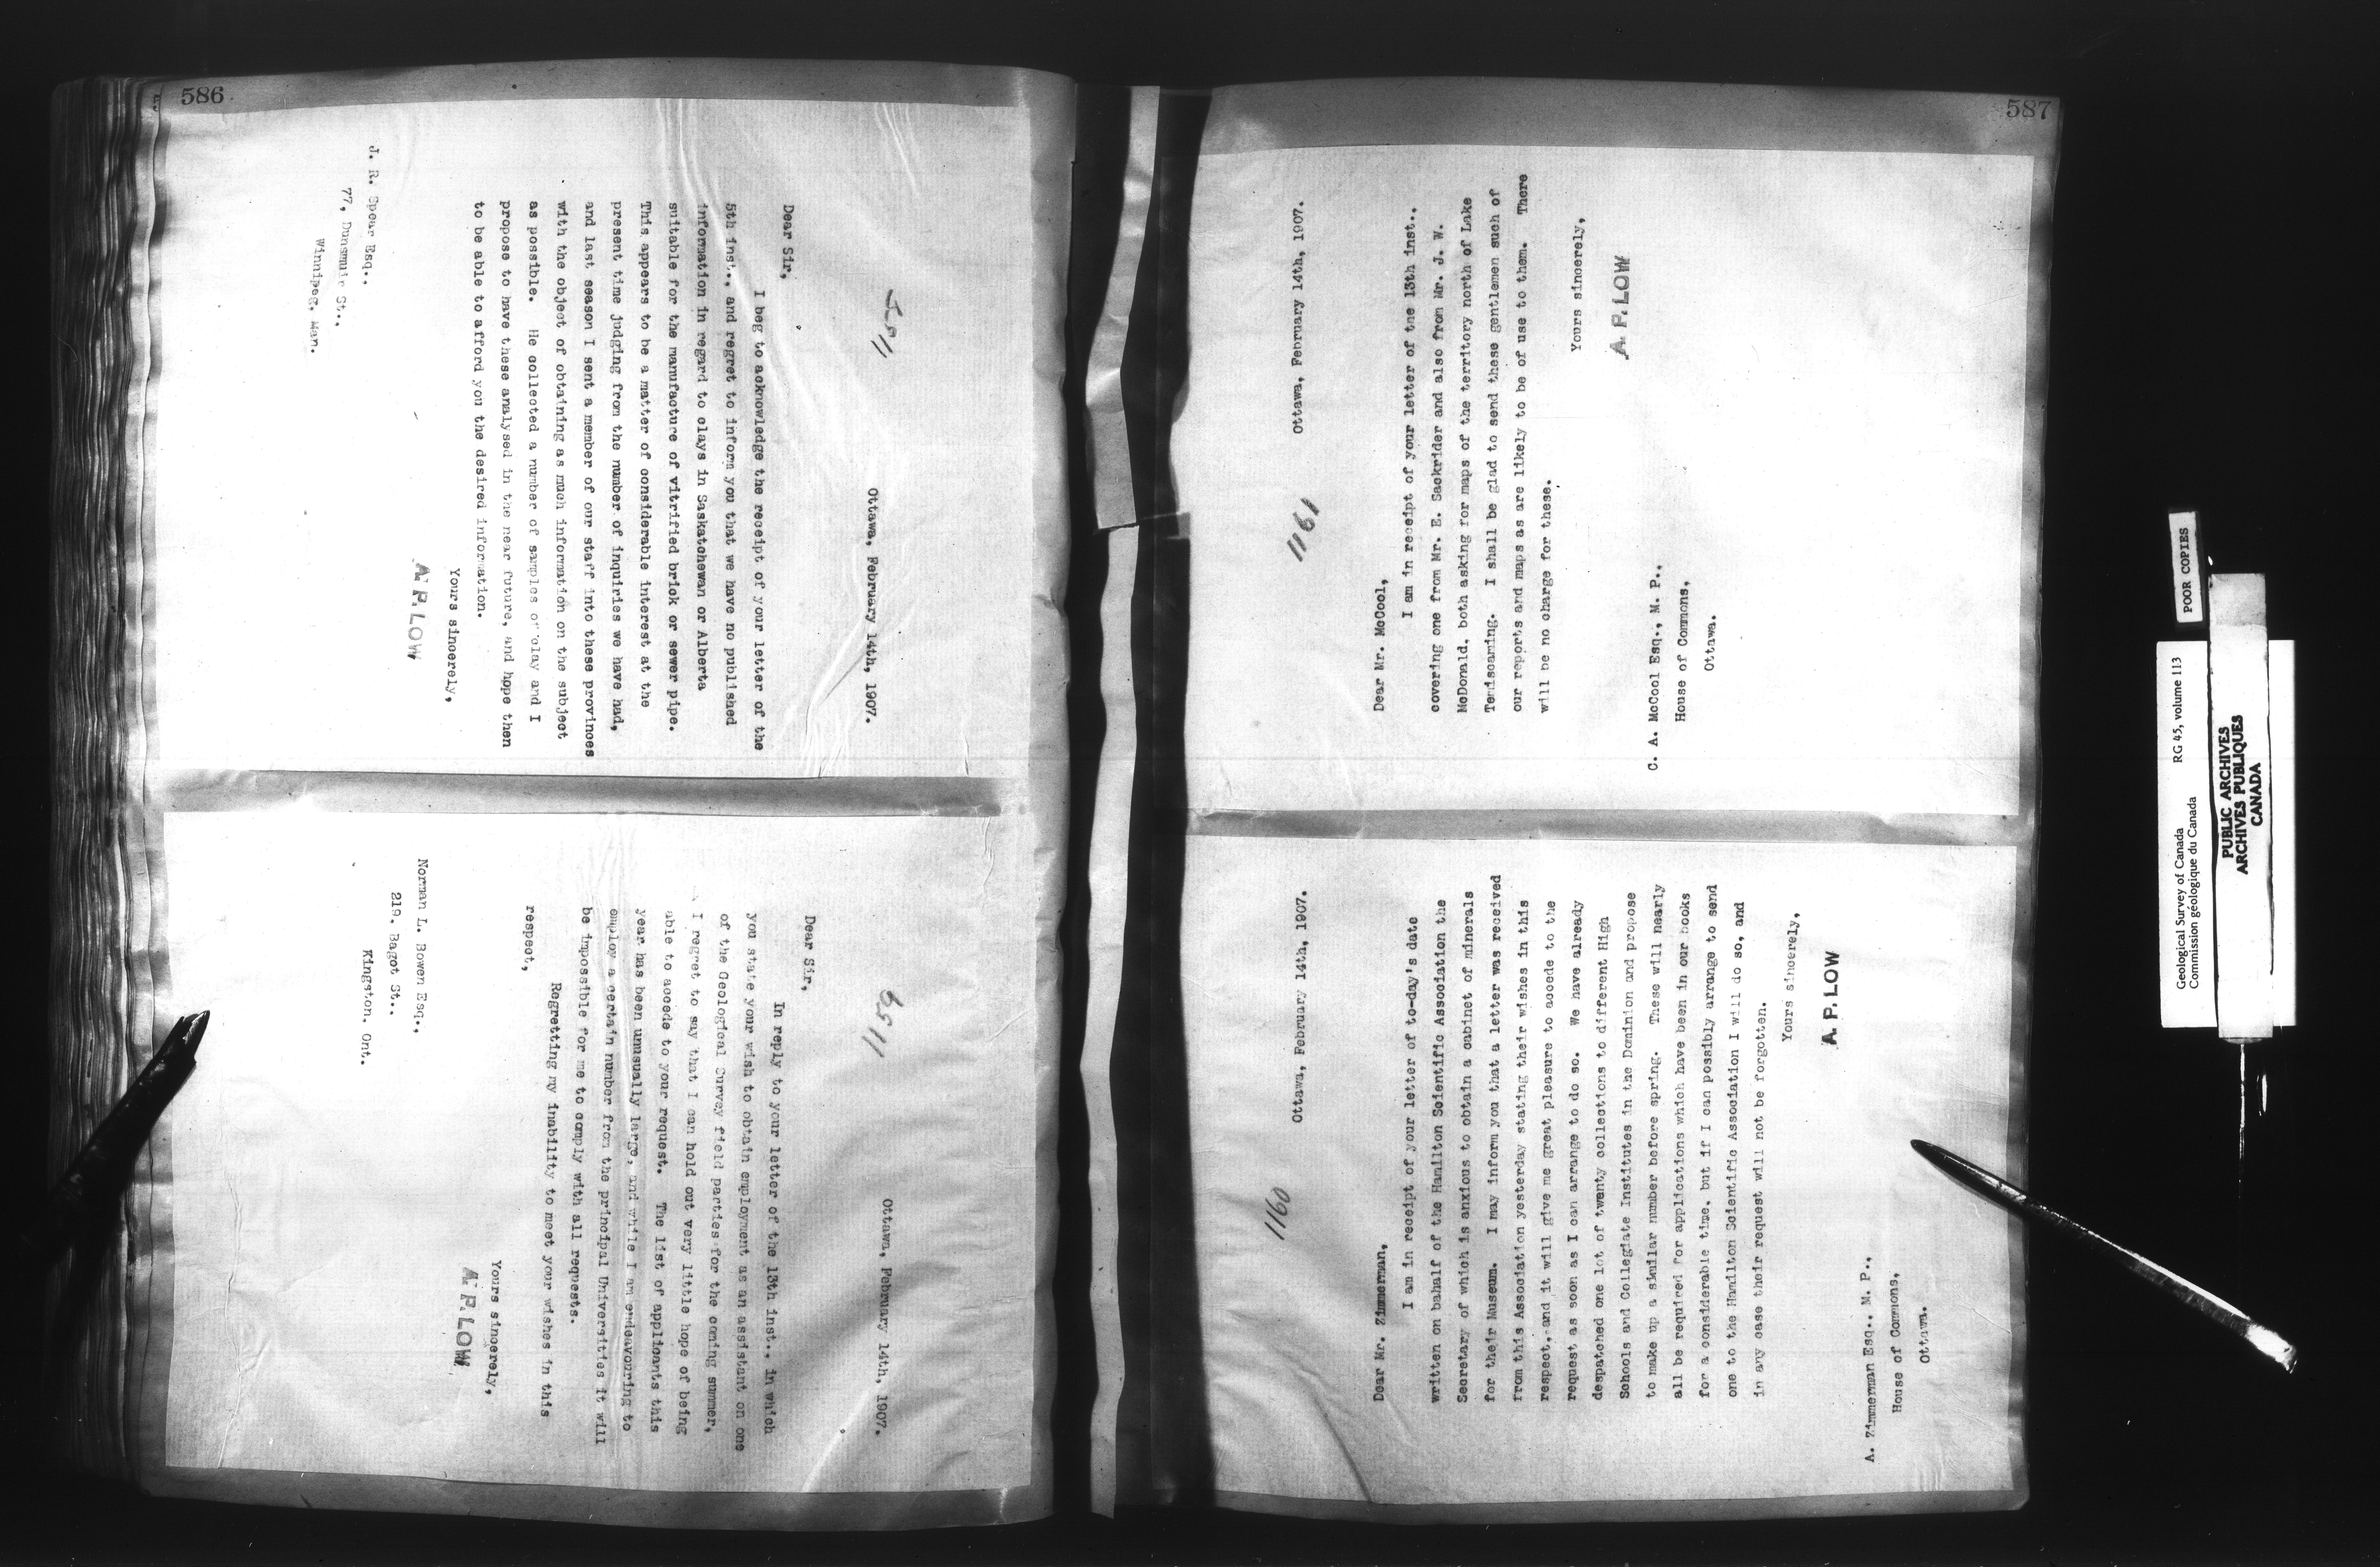 586
Ottawa, February 14th, 1907.
Dear Sir,
I beg to acknowledge the receipt of your letter of the
5th inst., and regret to inform you that we have no published
information in regard to clays in Saskatchewan or Alberta
suitable for the manufacture of vitrified brick or sewer pipe.
This appears to be a matter of considerable interest at the
present time judging from the number of inquiries we have had,
and last season I sent a member of our staff into these provinces
with the object of obtaining as much information on the subject
as possible. He collected a number of samples of clay and I
propose to have these analysed in the near future, and hope then
to be able to afford you the desired information.
Yours sincerely,
A. P. LOW
J. R. Spear Esq.,
77, Dunsmuir St.,
Winnipeg, Man.
1159
Ottawa, February 14th, 1907.
Dear Sir,
In reply to your letter of the 13th inst., in which
you state your wish to obtain employment as an assistant on one
of the Geological Survey field parties for the coming summer,
I regret to say that I can hold out very little hope of being
able to accede to your request. The list of applicants this
year has been unusually large, and while I am endeavouring to
employ a certain number from the principal Universities it will
be impossible for me to comply with all requests.
Regretting my inability to meet your wishes in this
respect,
Yours sincerely,
A. P. LOW
Norman L. Bowen Esq.,
219. Bagot St..
Kingston. Ont.
587
1161
Ottawa, February 14th, 1907.
Dear Mr. McCool,
I am in receipt of your letter of the 13th inst.,
covering one from Mr. E. Sackrider and also from Mr. J. W.
McDonald, both asking for maps of the territory north of Lake
Temiscaming. I shall be glad to send these gentlemen such of
our reports and maps as are likely to be of use to them. There
will be no charge for these.
Yours sincerely,
A. P. LOW
C. A. McCool Esq., M. P.,
House of Commons,
Ottawa.
1160
Ottawa, February 14th, 1907.
Dear Mr. Zimmerman,
I am in receipt of your letter of to-day's date
written on bahalf of the Hamilton Scientific Association the
Secretary of which is anxious to obtain a cabinet of minerals
for their Museum. I may inform you that a letter was received
from this Association yesterday stating their wishes in this
respect, and it will give me great pleasure to accede to the
request as soon as I can arrange to do so. We have already
despatched one lot of twenty collections to different High
Schools and Collegiate Institutes in the Dominion and propose
to make up a similar number before spring. These will nearly
all be required for applications which have been in our books
for a considerable time, but if I can possibly arrange to send
one to the Hamilton Scientific Association I will do so, and
in any case their request will not be forgotten.
Yours sincerely,
A. P. LOW
A. Zimmerman Esq., M. P.,
House of Commons,
Ottawa.
POOR COPIES
Geological Survey of Canada RG 45, volume 113
Commission géologique du Canada
PUBLIC ARCHIVES
ARCHIVES PUBLIQUES
CANADA